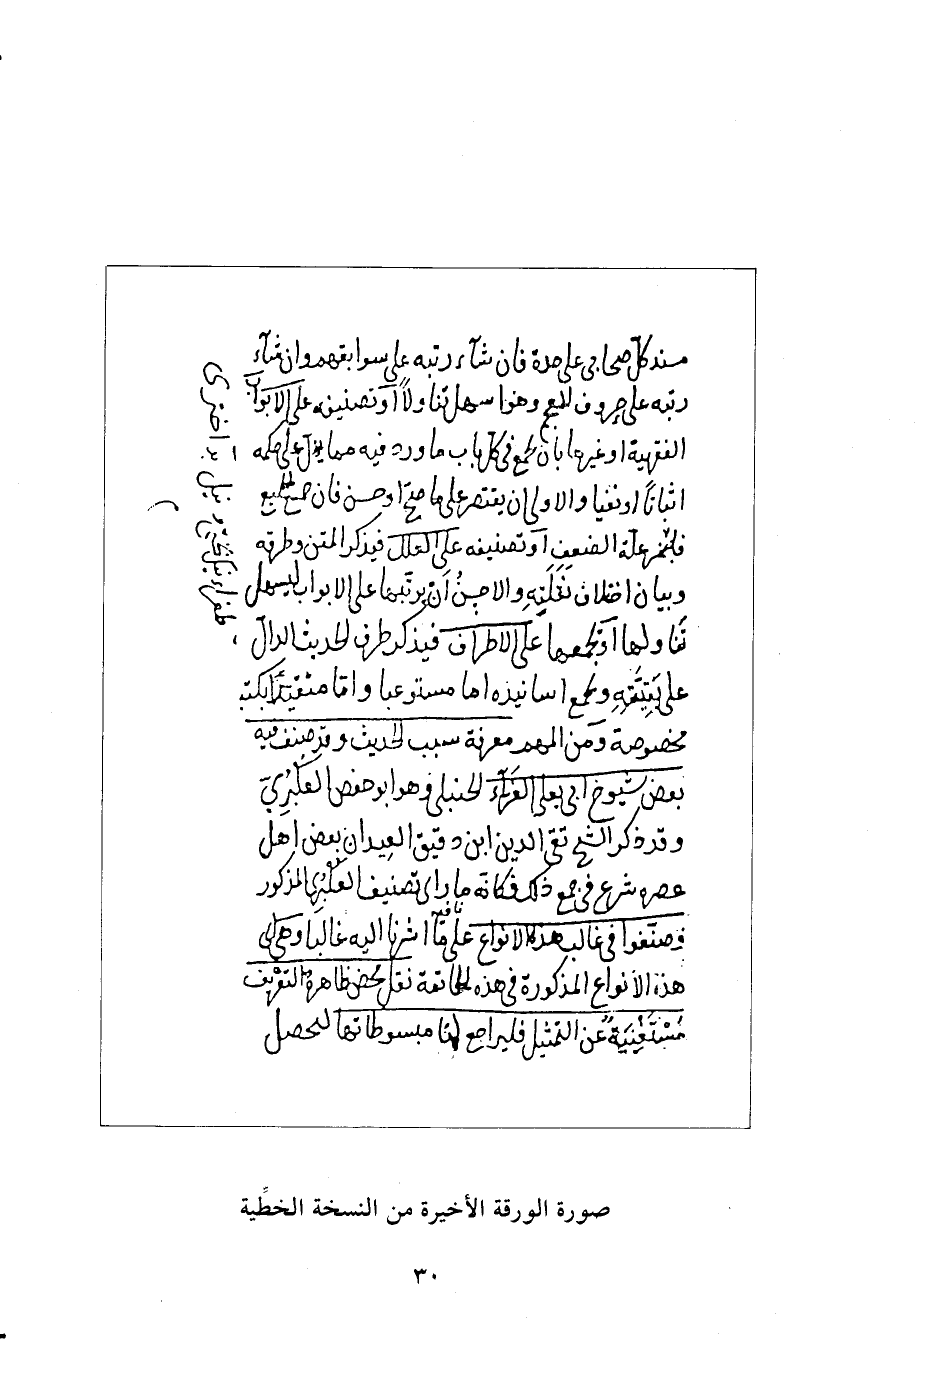 مسند كلّ صحابي على حدة فان شآء رتبه على سوابقهم وان شآء
رتبه على حروف المعجم وهو اسهل تناولاً آو تصنيفه على الابواب
الفقهية او غيرها بان يجمع في كلّ باب ما ورد فيه مما يدلّ على حكمه
اثباتاً او نفيا والاولى ان يقتصر على ما صحّ او حسن فان جمع الجميع
فليبيّن علّة الضعف آو تصنيفه على العلل فيذكر المتن وطرقه
وبيان اختلاف نقلته والاحسن أن يرتبها على الابواب ليسهل
تناولها آو يجمعها على الاطراف فيذكر طرف الحديث الدالّ
على بقيّته ويجمع اسانيده اما مستوعبا واما متقيّدًا بكتب
مخصوصة ومن المهم معرفة سبب الحديث وقد صنف فيه
بعض شيوخ ابي يعلى الفرّآء الحنبلي وهو ابو حفص العكبُريّ
وقد ذكر الشيخ تقي الدين ابن دقيق العيد ان بعض اهل
عصره شرع في جمع ذلك فكانّه ما راى تصنيف العكبُري المذكور
وصنّفوا في غالب هذه الانواع على ما اشرنا اليه غالبا وهي اي
هذه الأنواع المذكورة في هذه الخاتمة نقل محض ظاهرة التعريف
مُسْتَغْنِيَةٌ عن التمثيل فليراجع لها مبسوطاتها ليحصل
صورة الورقة الأخيرة من النسخة الخطِّية
٣٠